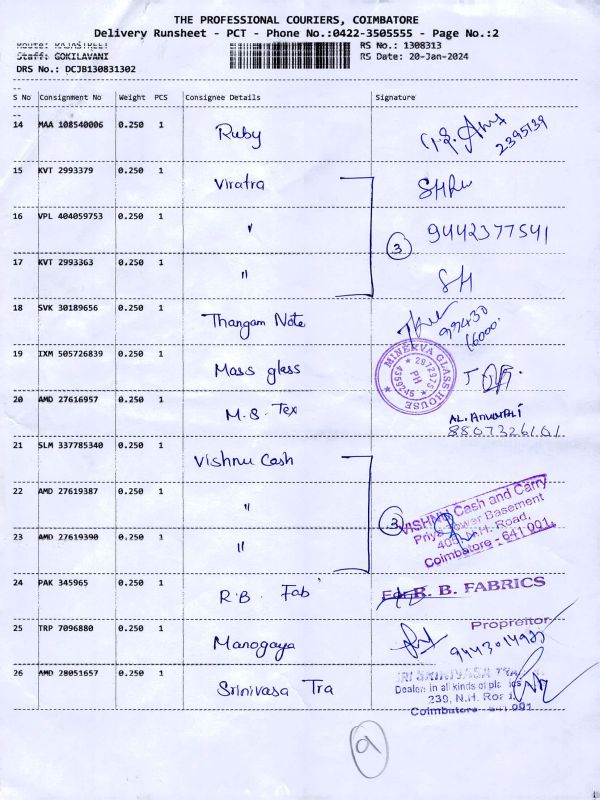 THE PROFESSIONAL COURIERS, COIMBATORE
Delivery Runsheet - PCT - Phone No.:0422-3505555 - Page No.:2
Route: RAJASTREET RS No.: 1308313
Staff: GOKILAVANI RS Date: 20-Jan-2024
DRS No.: DCJB130831302
S No Consignment No Weight PCS Consignee Details Signature
14 MAA 108540006 0.250 1 Ruby
2395139
15 KVT 2993379 0.250 1 Viratra
16 VPL 404059753 0.250 1 " 3 9442377541
17 KVT 2993363 0.250 1 " SH
18 SVK 30189656 0.250 1 Thangam Note 99430
16000.
19 IXM 505726839 0.250 1 Mass glass
MINERVA GLASS HOUSE
PH
20 AMD 27616957 0.250 1 M.S. Tex
8807326101
21 SLM 337785340 0.250 1 Vishnu Cash
22 AMD 27619387 0.250 1 "
23 AMD 27619390 0.250 1 "
3
VISHNU Cash and Carry
Priya Tower Basement
N.H. Road,
Coimbatore - 641 001.
24 PAK 345965 0.250 1 R.B. Fab'
For R. B. FABRICS
Propreitor
25 TRP 7096880 0.250 1 Manogaya
26 AMD 28051657 0.250 1 Srinivasa Tra
SRI SRINIVASA
Dealer in all kinds of
239, N.H. Road
Coimbatore - 641 001
9